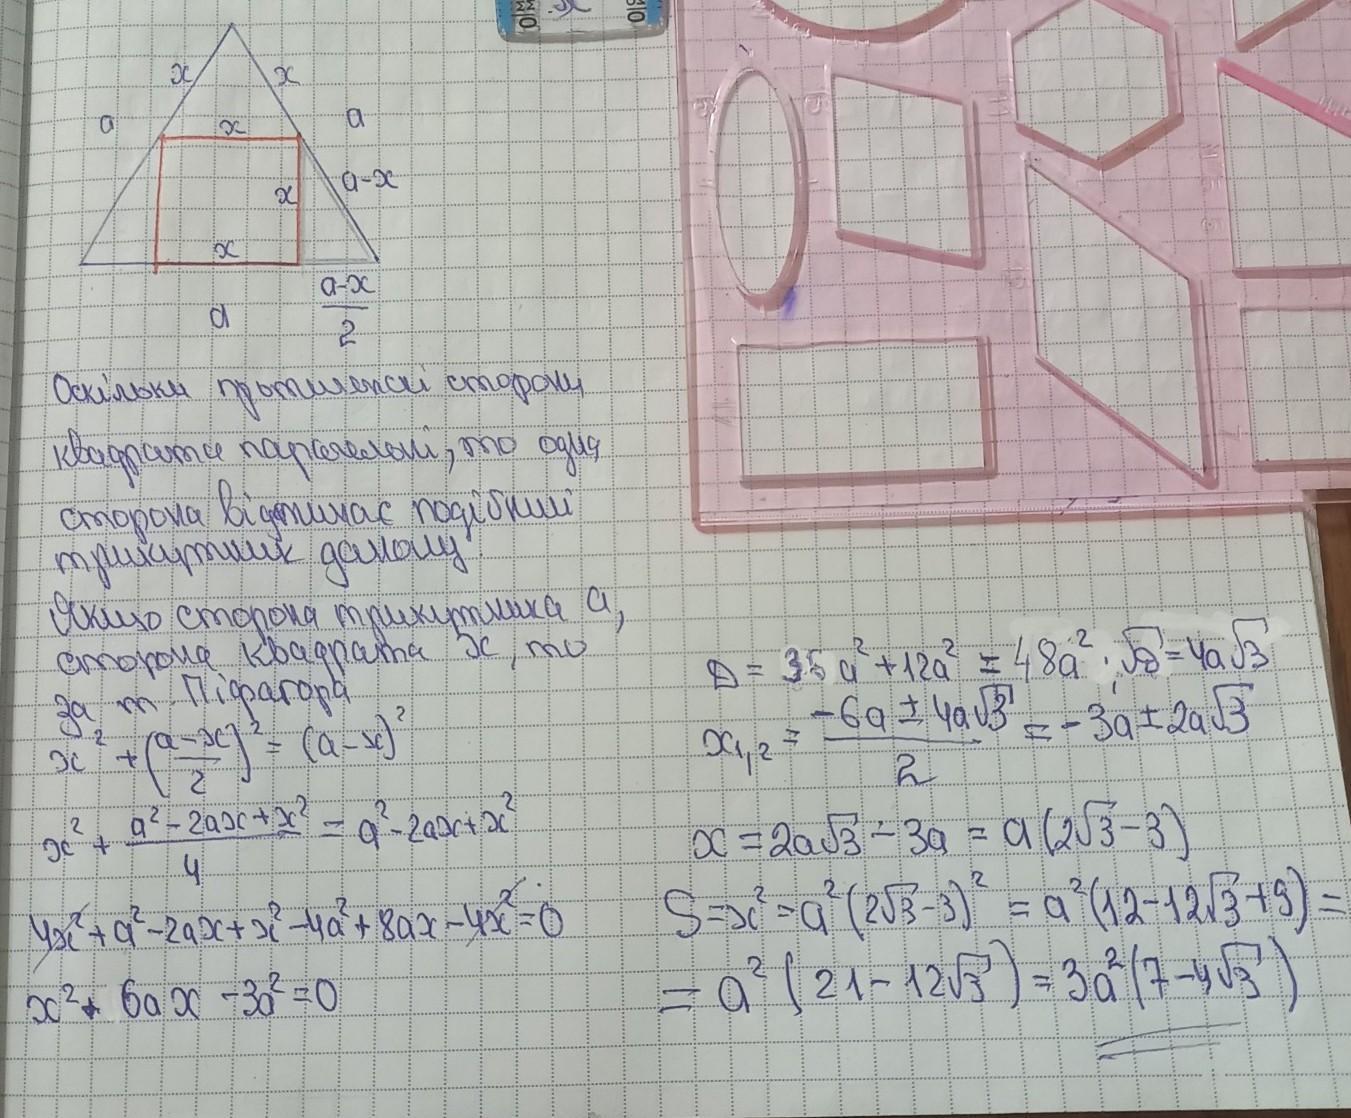 x
x
a
x
a
x
a-x
x
a
a-x
2
Оскільки протилежні сторони
квадрата паралельні, то одна
сторона відтинає подібний
трикутник даному
Якщо сторона трикутника a,
сторона квадрата x, то
за т. Піфагора
x² + (a-x/2)² = (a-x)²
x² + a²-2ax+x²/4 = a²-2ax+x²
4x²+a²-2ax+x²-4a²+8ax-4x²=0
x²+6ax-3a²=0
D = 36a²+12a² = 48a²; √D=4a√3
x₁,₂ = -6a±4a√3/2 = -3a±2a√3
x = 2a√3-3a = a(2√3-3)
S=x²=a²(2√3-3)² = a²(12-12√3+9)=
= a²(21-12√3)=3a²(7-4√3)